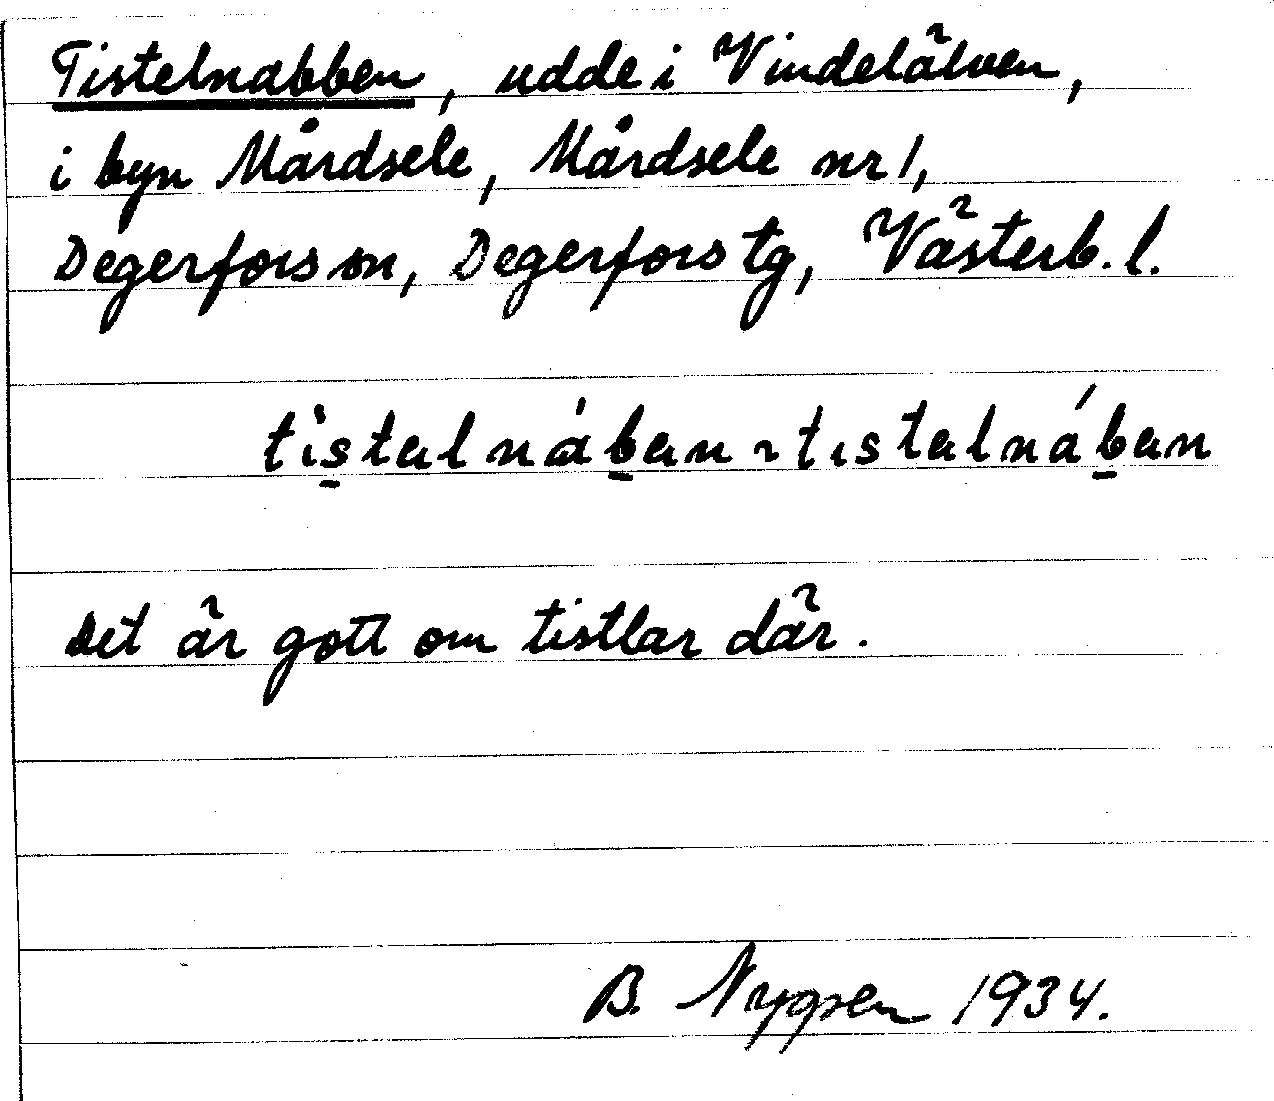 Tistelnabben, udde i Vindelälven,
i byn Mårdsele, Mårdsele nr 1,
Degerfors sn, Degerfors tg, Västerb. l.
tìs̠təl náb̠ən ~ tıstəlnáb̠ən
Det är gott om tistlar där.
B. 1934.